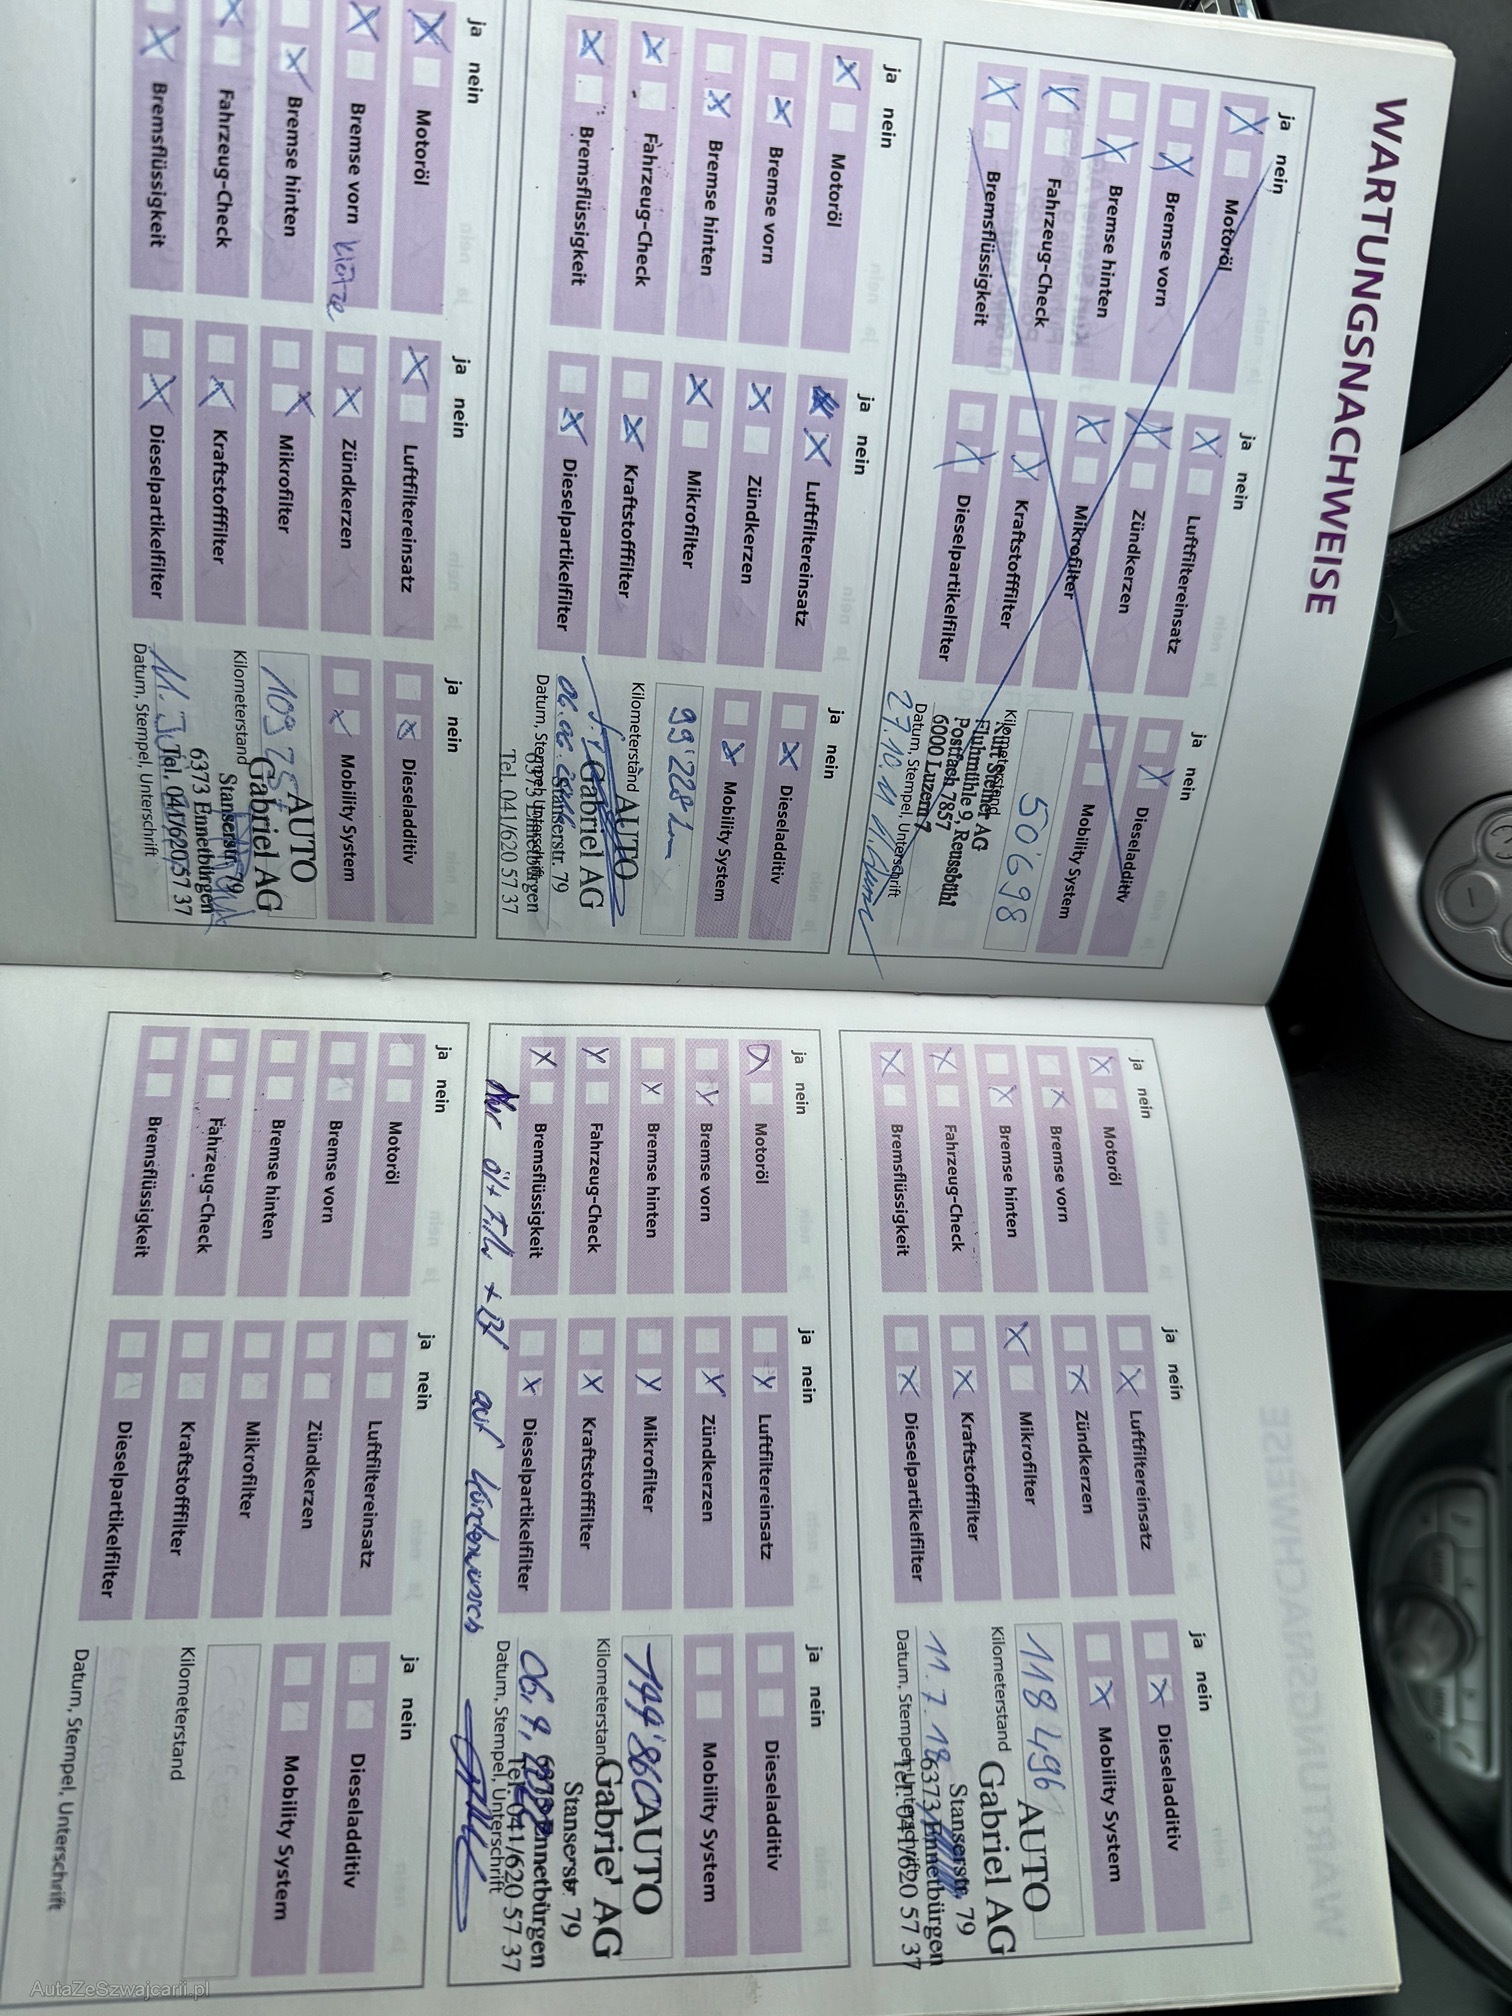 WARTUNGSNACHWEISE
ja nein
Motoröl
Bremse vorn
Bremse hinten
Fahrzeug-Check
Bremsflüssigkeit
ja nein
Luftfiltereinsatz
Zündkerzen
Mikrofilter
Kraftstofffilter
Dieselpartikelfilter
ja nein
Dieseladditiv
Mobility System
50'698
Kilometerstand
Kurt Steiner AG
Fluhmühle 9, Reussbühl
Postfach 7857
6000 Luzern 7
Datum, Stempel, Unterschrift
27.10.11
ja nein
Motoröl
Bremse vorn
Bremse hinten
Fahrzeug-Check
Bremsflüssigkeit
ja nein
Luftfiltereinsatz
Zündkerzen
Mikrofilter
Kraftstofffilter
Dieselpartikelfilter
ja nein
Dieseladditiv
Mobility System
99'228 km
Kilometerstand
AUTO
Gabriel AG
Stanserstr. 79
6373 Ennetbürgen
Tel. 041/620 57 37
06.06.
Datum, Stempel, Unterschrift
ja nein
Motoröl
Bremse vorn Klötze
Bremse hinten
Fahrzeug-Check
Bremsflüssigkeit
ja nein
Luftfiltereinsatz
Zündkerzen
Mikrofilter
Kraftstofffilter
Dieselpartikelfilter
ja nein
Dieseladditiv
Mobility System
Kilometerstand
AUTO
Gabriel AG
Stanserstr. 79
6373 Ennetbürgen
Tel. 041/620 57 37
11.
Datum, Stempel, Unterschrift
ja nein
Motoröl
Bremse vorn
Bremse hinten
Fahrzeug-Check
Bremsflüssigkeit
ja nein
Luftfiltereinsatz
Zündkerzen
Mikrofilter
Kraftstofffilter
Dieselpartikelfilter
ja nein
Dieseladditiv
Mobility System
118 496
Kilometerstand
AUTO
Gabriel AG
Stanserstr. 79
6373 Ennetbürgen
Tel. 041/620 57 37
11.7.18
Datum, Stempel, Unterschrift
ja nein
Motoröl
Bremse vorn
Bremse hinten
Fahrzeug-Check
Bremsflüssigkeit
ja nein
Luftfiltereinsatz
Zündkerzen
Mikrofilter
Kraftstofffilter
Dieselpartikelfilter
ja nein
Dieseladditiv
Mobility System
Kilometerstand
AUTO
Gabriel AG
Stanserstr. 79
6373 Ennetbürgen
Tel. 041/620 57 37
Datum, Stempel, Unterschrift
auf Kundenwunsch
ja nein
Motoröl
Bremse vorn
Bremse hinten
Fahrzeug-Check
Bremsflüssigkeit
ja nein
Luftfiltereinsatz
Zündkerzen
Mikrofilter
Kraftstofffilter
Dieselpartikelfilter
ja nein
Dieseladditiv
Mobility System
Kilometerstand
Datum, Stempel, Unterschrift
AutaZeSzwajcarii.pl